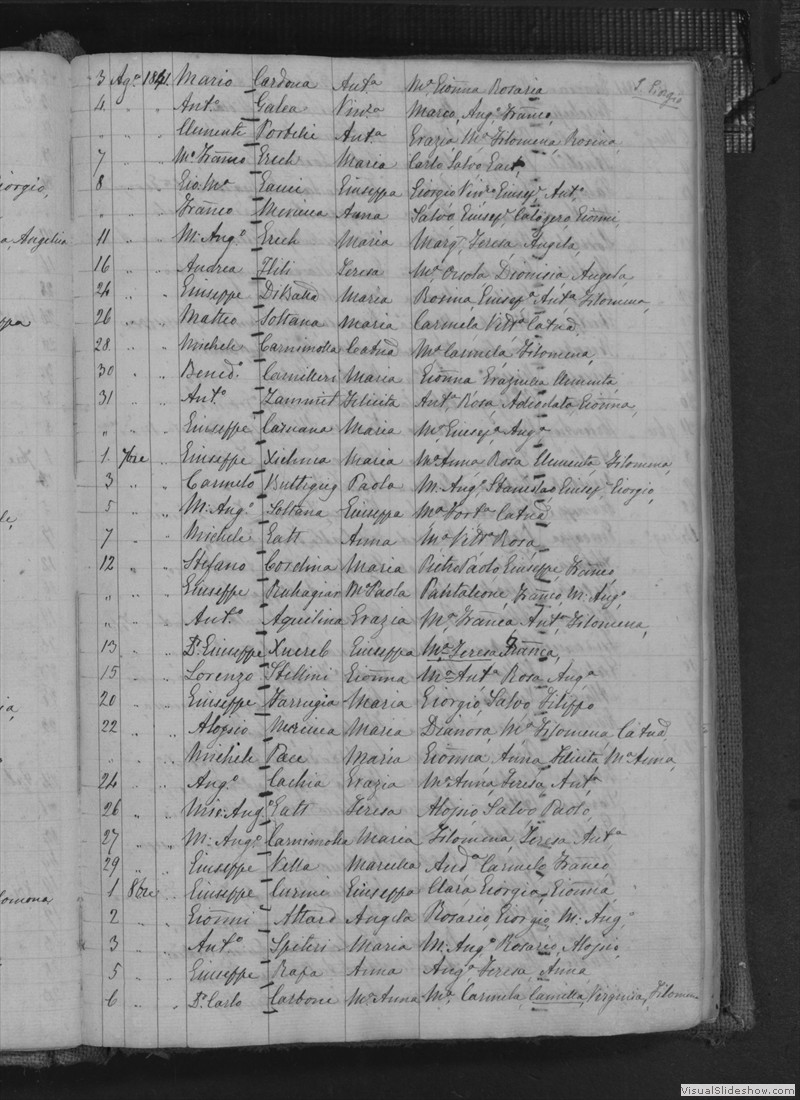 3 Ag.º 1841 Mario Cardona Ant.a M.a Giōnna Rosaria
4 „ „ Ant.º Galea Vinz.a Marco, Ang.º Franco,
„ „ Clemente Portelli Ant.a Grazia, M.a Filomena, Rosina
7 „ „ M. Franco Grech Maria Carlo Salvo
8 „ „ Gio. M.a Gauci Giuseppa Giorgio Vinc.º Giusep.e Ant.º
„ „ Franco Mercieca Anna Salvo, Giusep.e, Calogero, Giōnni,
11 „ „ M. Ang.º Grech Maria Marg.a, Teresa, Angela,
16 „ „ Andrea Teresa M.a Orsola Dionisia Angela,
24 „ „ Giuseppe DiBatta Maria Rosina, Giusep.a Ant.a Filomena,
26 „ „ Matteo Soltana Maria Carmela, Vitt.a Catna
28 „ „ Michele Garnimolla Catna M.a Carmela, Filomena,
30 „ „ Bened.º Camilleri Maria Giōnna Graziella Clementa
31 „ „ Ant.º Zammit Felicita Ant.a Rosa, Adeodata Giōnna,
„ „ Giuseppe Caruana Maria M.a Giusep.a Ang.a
1 7bre „ Giuseppe Xiclina Maria M.a Anna Rosa Clementa, Filomena,
3 „ „ Carmelo Buttigieg Paola M. Ang.º Stanislao, Giusep.e Giorgio,
5 „ „ M. Ang.º Soltana Giuseppa M.a Fort.a Catna
7 „ „ Michele Galt Anna M.a Vitt.a Rosa,
12 „ „ Stefano Cordina Maria Pietro Paolo Giuseppe, Franco
„ „ Giuseppe Buhagiar M.a Paola Pantaleone, Franco, M. Ang.º,
„ „ Ant.º Aquilina Grazia M.a Franca, Ant.a Filomena,
13 „ „ Dr. Giuseppe Xuereb Giuseppa M.a Teresa Franca,
15 „ „ Lorenzo Stellini Giōnna M.a Ant.a Rosa, Ang.a
20 „ „ Giuseppe Farrugia Maria Giorgio, Salvo Filippo
22 „ „ Aloysio Mercieca Maria Dianora, M.a Filomena Catna,
„ „ Michele Pace Maria Giōnna Anna, Felicita M.a Anna,
24 „ „ Ang.º Cachia Grazia M.a Anna, Teresa, Ant.a
26 „ „ Mic. Ang.º Galt Teresa Aloysio, Salvo Paolo,
27 „ „ M. Ang.º Garnimolla Maria Filomena, Teresa, Ant.a
29 „ „ Giuseppe Vella Marcella And.a Carmelo Franco
1 8bre „ Giuseppe Curmi Giuseppa Clara Giorgia, Giōnna,
2 „ „ Giōnni Attard Angela Rosario, Giorgio, M. Ang.º
3 „ „ Ant.º Spiteri Maria M. Ang.º Rosario, Aloysio,
5 „ „ Giuseppe Rapa Anna Ang.a Teresa, Anna
6 „ „ Dr. Carlo Carbone M.a Anna M.a Carmela, Camilla, Virginia, Filomena
iorgio,
a, Angelina
ppa
lomona
VisualSlideshow.com